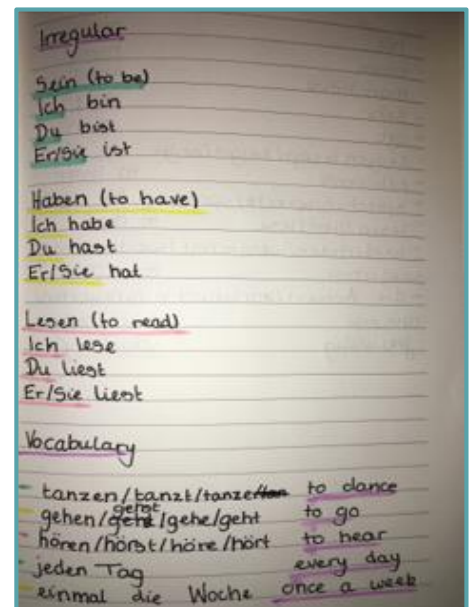 Irregular
Sein (to be)
Ich bin
Du bist
Er/Sie ist
Haben (to have)
Ich habe
Du hast
Er/Sie hat
Lesen (to read)
Ich lese
Du liest
Er/Sie liest
Vocabulary
- tanzen/tanzt/tanze to dance
gehst
- gehen/ /gehe/geht to go
- hören/hörst/höre/hört to hear
- jeden Tag every day
- einmal die Woche once a week